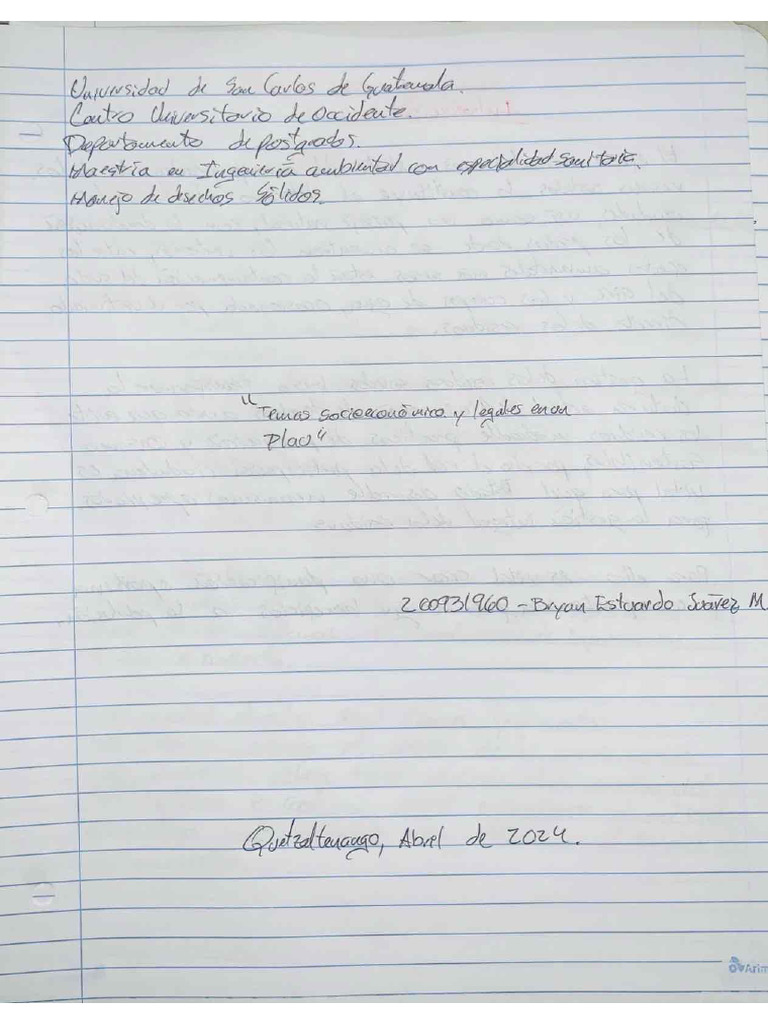 Universidad de San Carlos de Guatemala.
Centro Universitario de Occidente.
Departamento de postgrados.
Maestría en Ingeniería ambiental con especialidad sanitaria
Manejo de desechos Sólidos.
"Temas socioeconómico y legales en un
Plan"
200931960 - Bryan Estuardo Juárez M
Quetzaltenango, Abril de 2024.
Arim